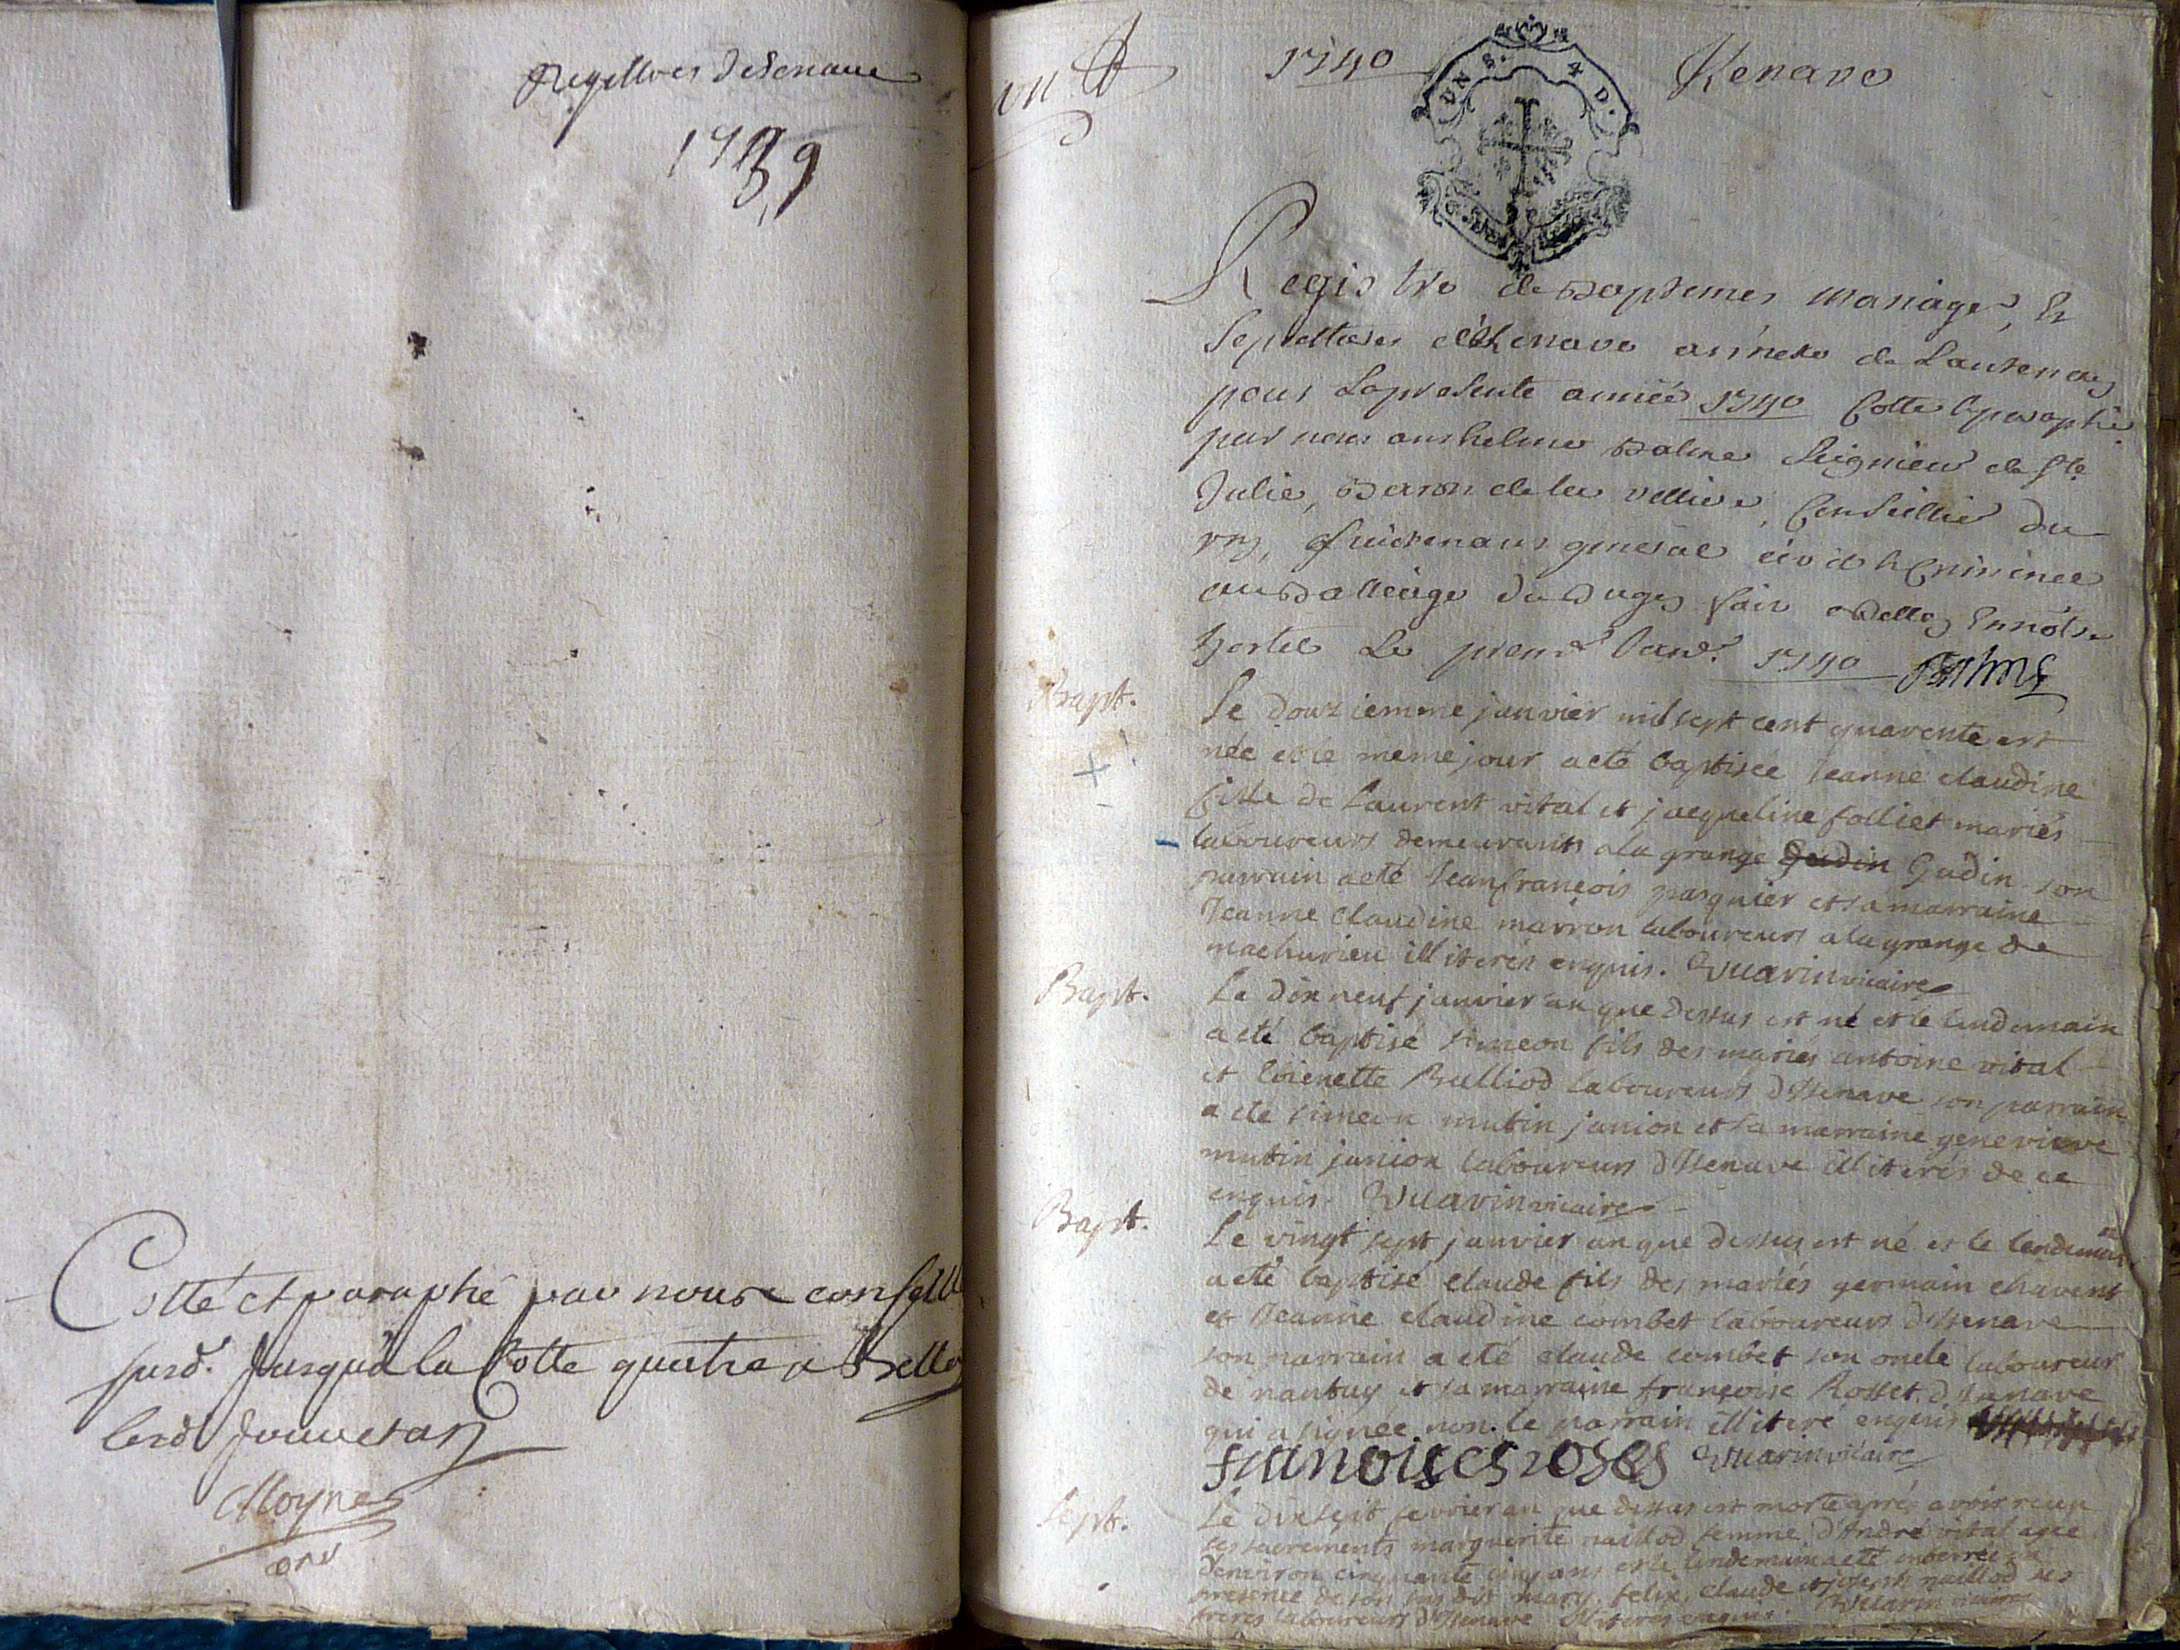 1739
Cotté et paraphé par nous conseill
susd. Jusqu'à la Cotte quatre a Belley
Moyne
1740
UN S. 4 D.
Registre de Baptemes mariages, Et
Sepultures annexe de
pour la presente année 1740 Cotté & paraphé
par nous anthelme Balme Seigneur de Ste
Julie, Baron de la, Conseillier du
roy, Lieutenant general civil & criminel
au Balliage du Bugey fait a Belley En nôtre
hostel Le premr Janr. 1740 Balme
Bapt.
Le douziemme janvier mil sept cent quarente est
née et le meme jour a eté baptisée Jeanne claudine
fille de Laurent vital et jacqueline folliet mariés
laboureurs demeurants a la grange Gudin son
parrain a eté Jean françois pasquier et sa marraine
Jeanne Claudine marron laboureurs a la grange de
machurieu illiterés enquis. Vuarin vicaire
Bapt.
Le dix neuf janvier an que dessus est né et le lendemain
a eté baptisé simeon fils des mariés antoine vital
et Bulliod laboureurs d'Izenave son parrain
a eté simeon mutin junion et sa marraine genevieve
mutin junion laboureurs d'Izenave illiterés de ce
enquis. Vuarin vicaire
Bapt.
Le vingt sept janvier an que dessus est né et le lendemain
a eté baptisé claude fils des mariés germain chavent
et Jeanne claudine combet laboureurs d'Izenave
son parrain a eté claude combet son oncle laboureur
de nantuy et sa marraine françoise Rosset d'Izenave
qui a signée non le parrain illiteré enquis
Vuarin vicaire
Sept.
Le dix sept fevrier an que dessus est morte aprés avoir reçu
ses sacrements marguerite naillod femme d'André vital agée
d'environ cinquante cinq ans et le lendemain a eté enterrée en
presence de son susdit mary, felix, claude et joseph naillod ses
freres laboureurs d'Izenave illiterés enquis. Vuarin vicaire